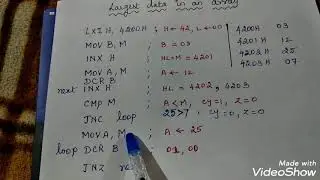 Largest data in an array
LXI H, 4200H ; H ← 42, L ← 00
MOV B, M ; B = 03
INX H ; HL = M = 4201
MOV A, M ; A ← 12
DCR B
next INX H ; HL = 4202, 4203
CMP M ; A < M, cy = 1, z = 0
JNC loop 25 > 7 ; cy = 0, z = 0
MOV A, M ; A ← 25
loop DCR B ; 01, 00
JNZ
4200H 03
4201H 12
4202H 25
4203H 07
Made with
VideoShow